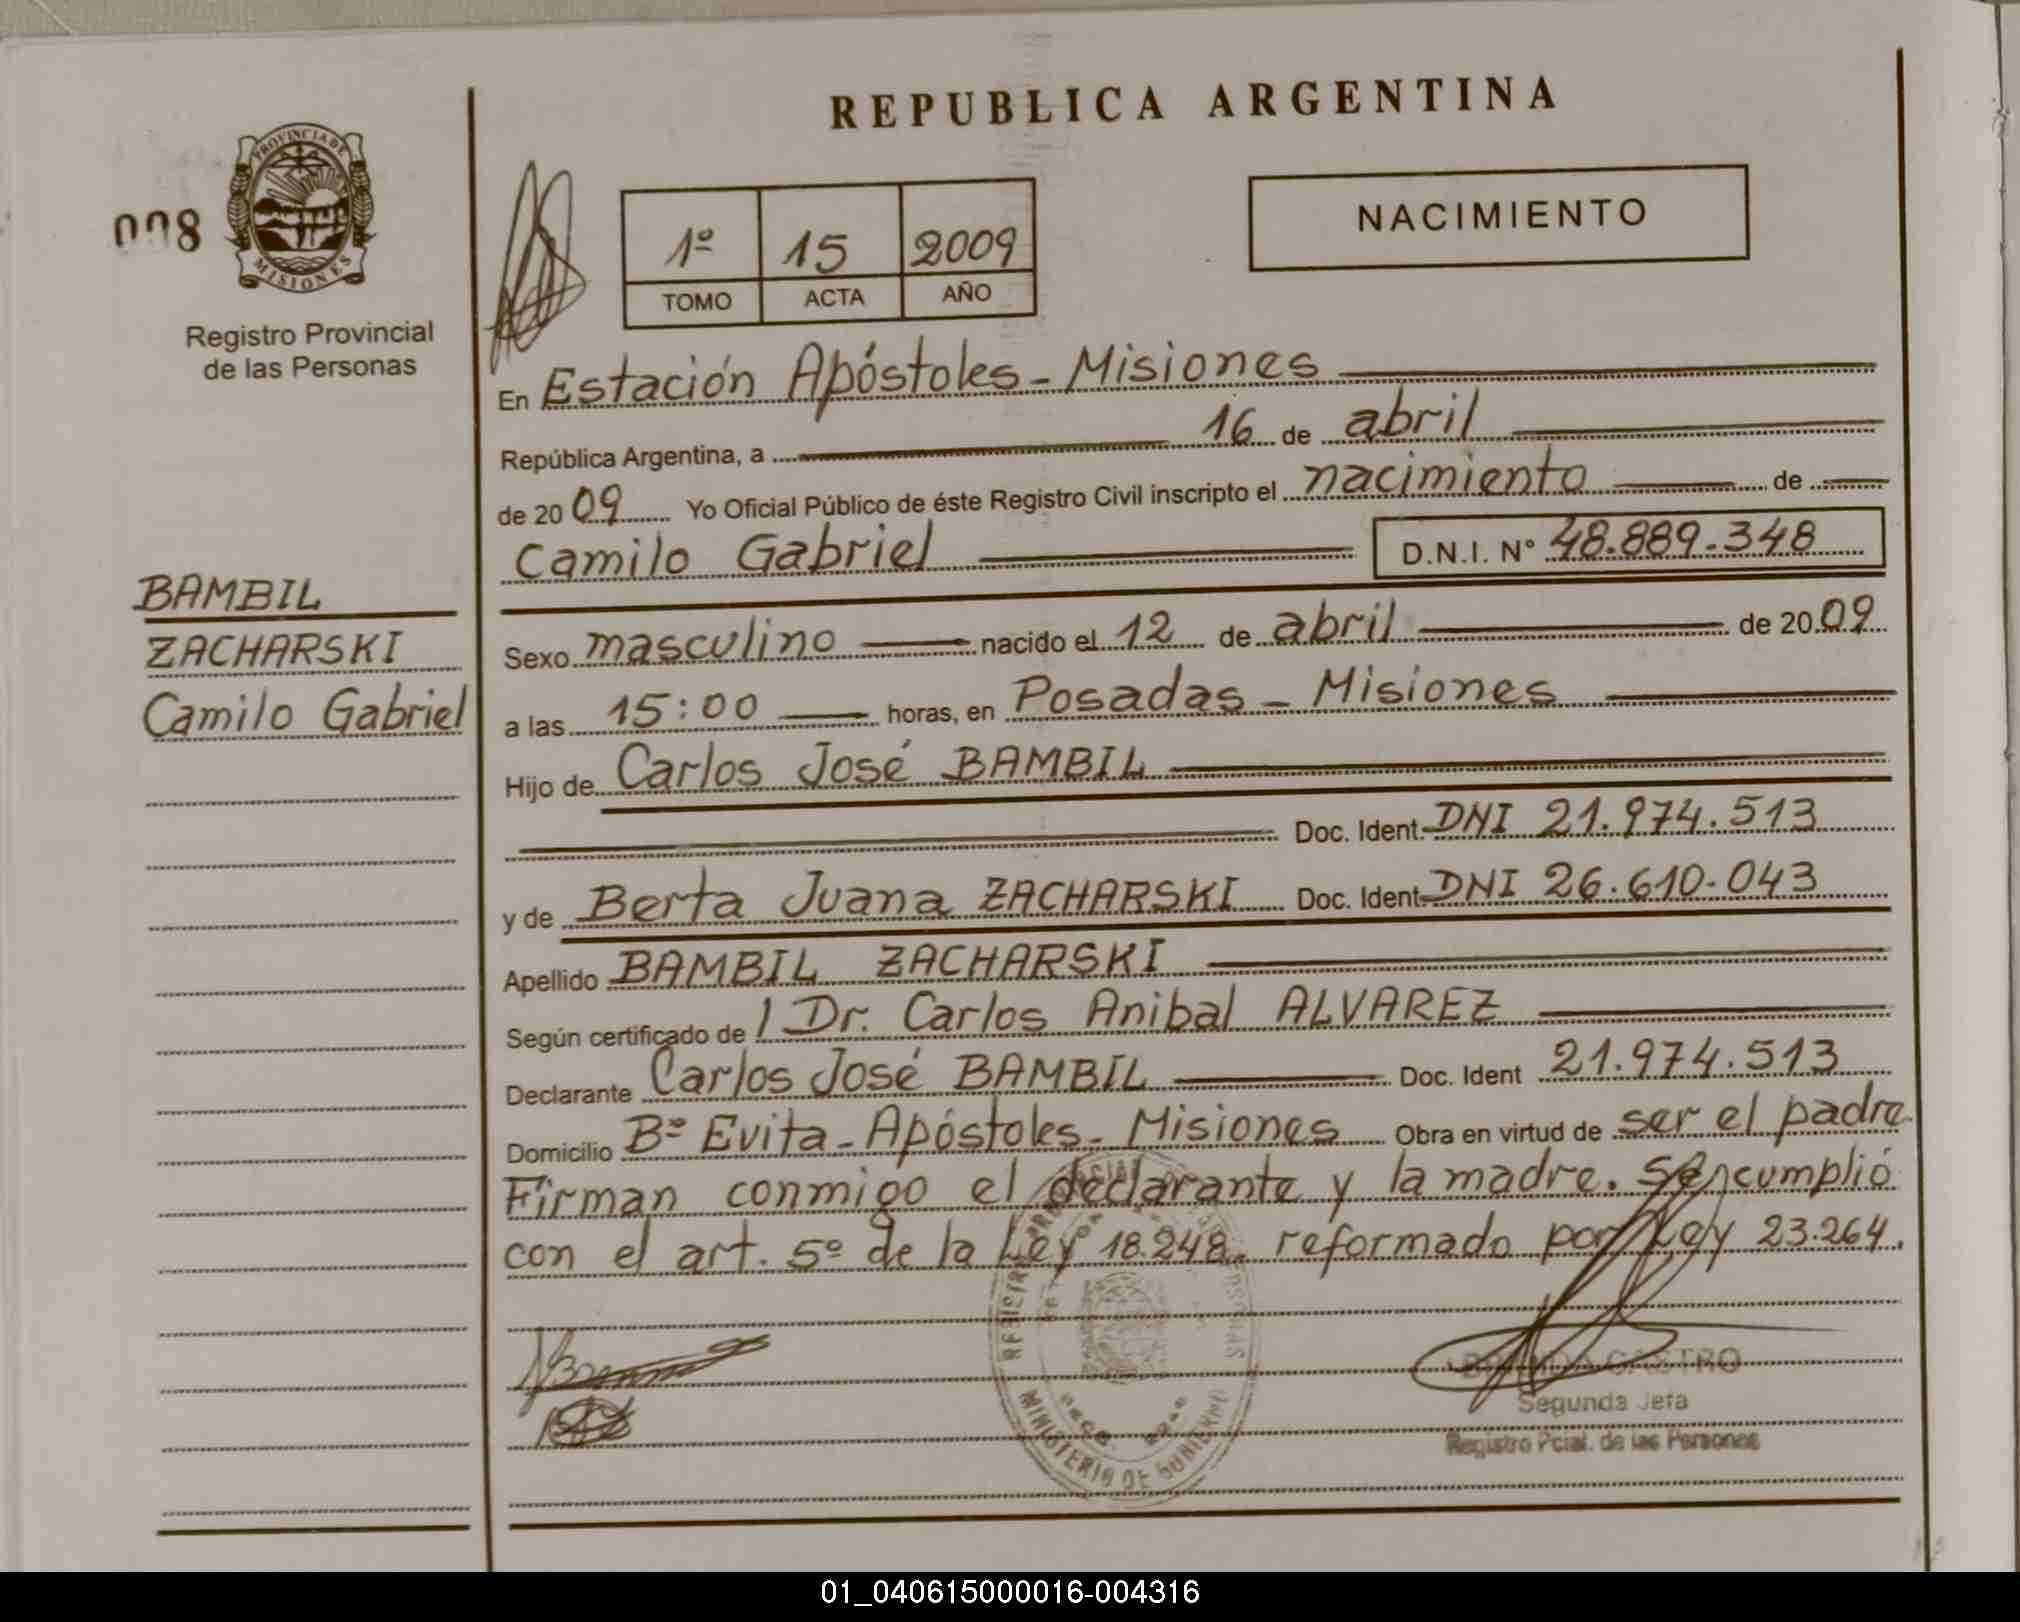 REPUBLICA ARGENTINA
PROVINCIA DE
MISIONES
008
Registro Provincial
de las Personas
1º 15 2009
TOMO ACTA AÑO
NACIMIENTO
BAMBIL
ZACHARSKI
Camilo Gabriel
En Estación Apóstoles - Misiones
República Argentina, a 16 de abril
de 2009 Yo Oficial Público de éste Registro Civil inscripto el nacimiento de
Camilo Gabriel D.N.I. Nº 48.889.348
Sexo masculino nacido el 12 de abril de 2009
a las 15:00 horas, en Posadas - Misiones
Hijo de Carlos José BAMBIL
Doc. Ident. DNI 21.974.513
y de Berta Juana ZACHARSKI Doc. Ident. DNI 26.610.043
Apellido BAMBIL ZACHARSKI
Según certificado de / Dr. Carlos Anibal ALVAREZ
Declarante Carlos José BAMBIL Doc. Ident 21.974.513
Domicilio Bº Evita - Apóstoles - Misiones Obra en virtud de ser el padre
Firman conmigo el declarante y la madre. Se cumplió
con el art. 5º de la Ley 18.248. reformado por Ley 23.264.
CASTRO
Segunda Jefa
Registro Pcial. de las Personas
MINISTERIO DE GOBIERNO
01_040615000016-004316